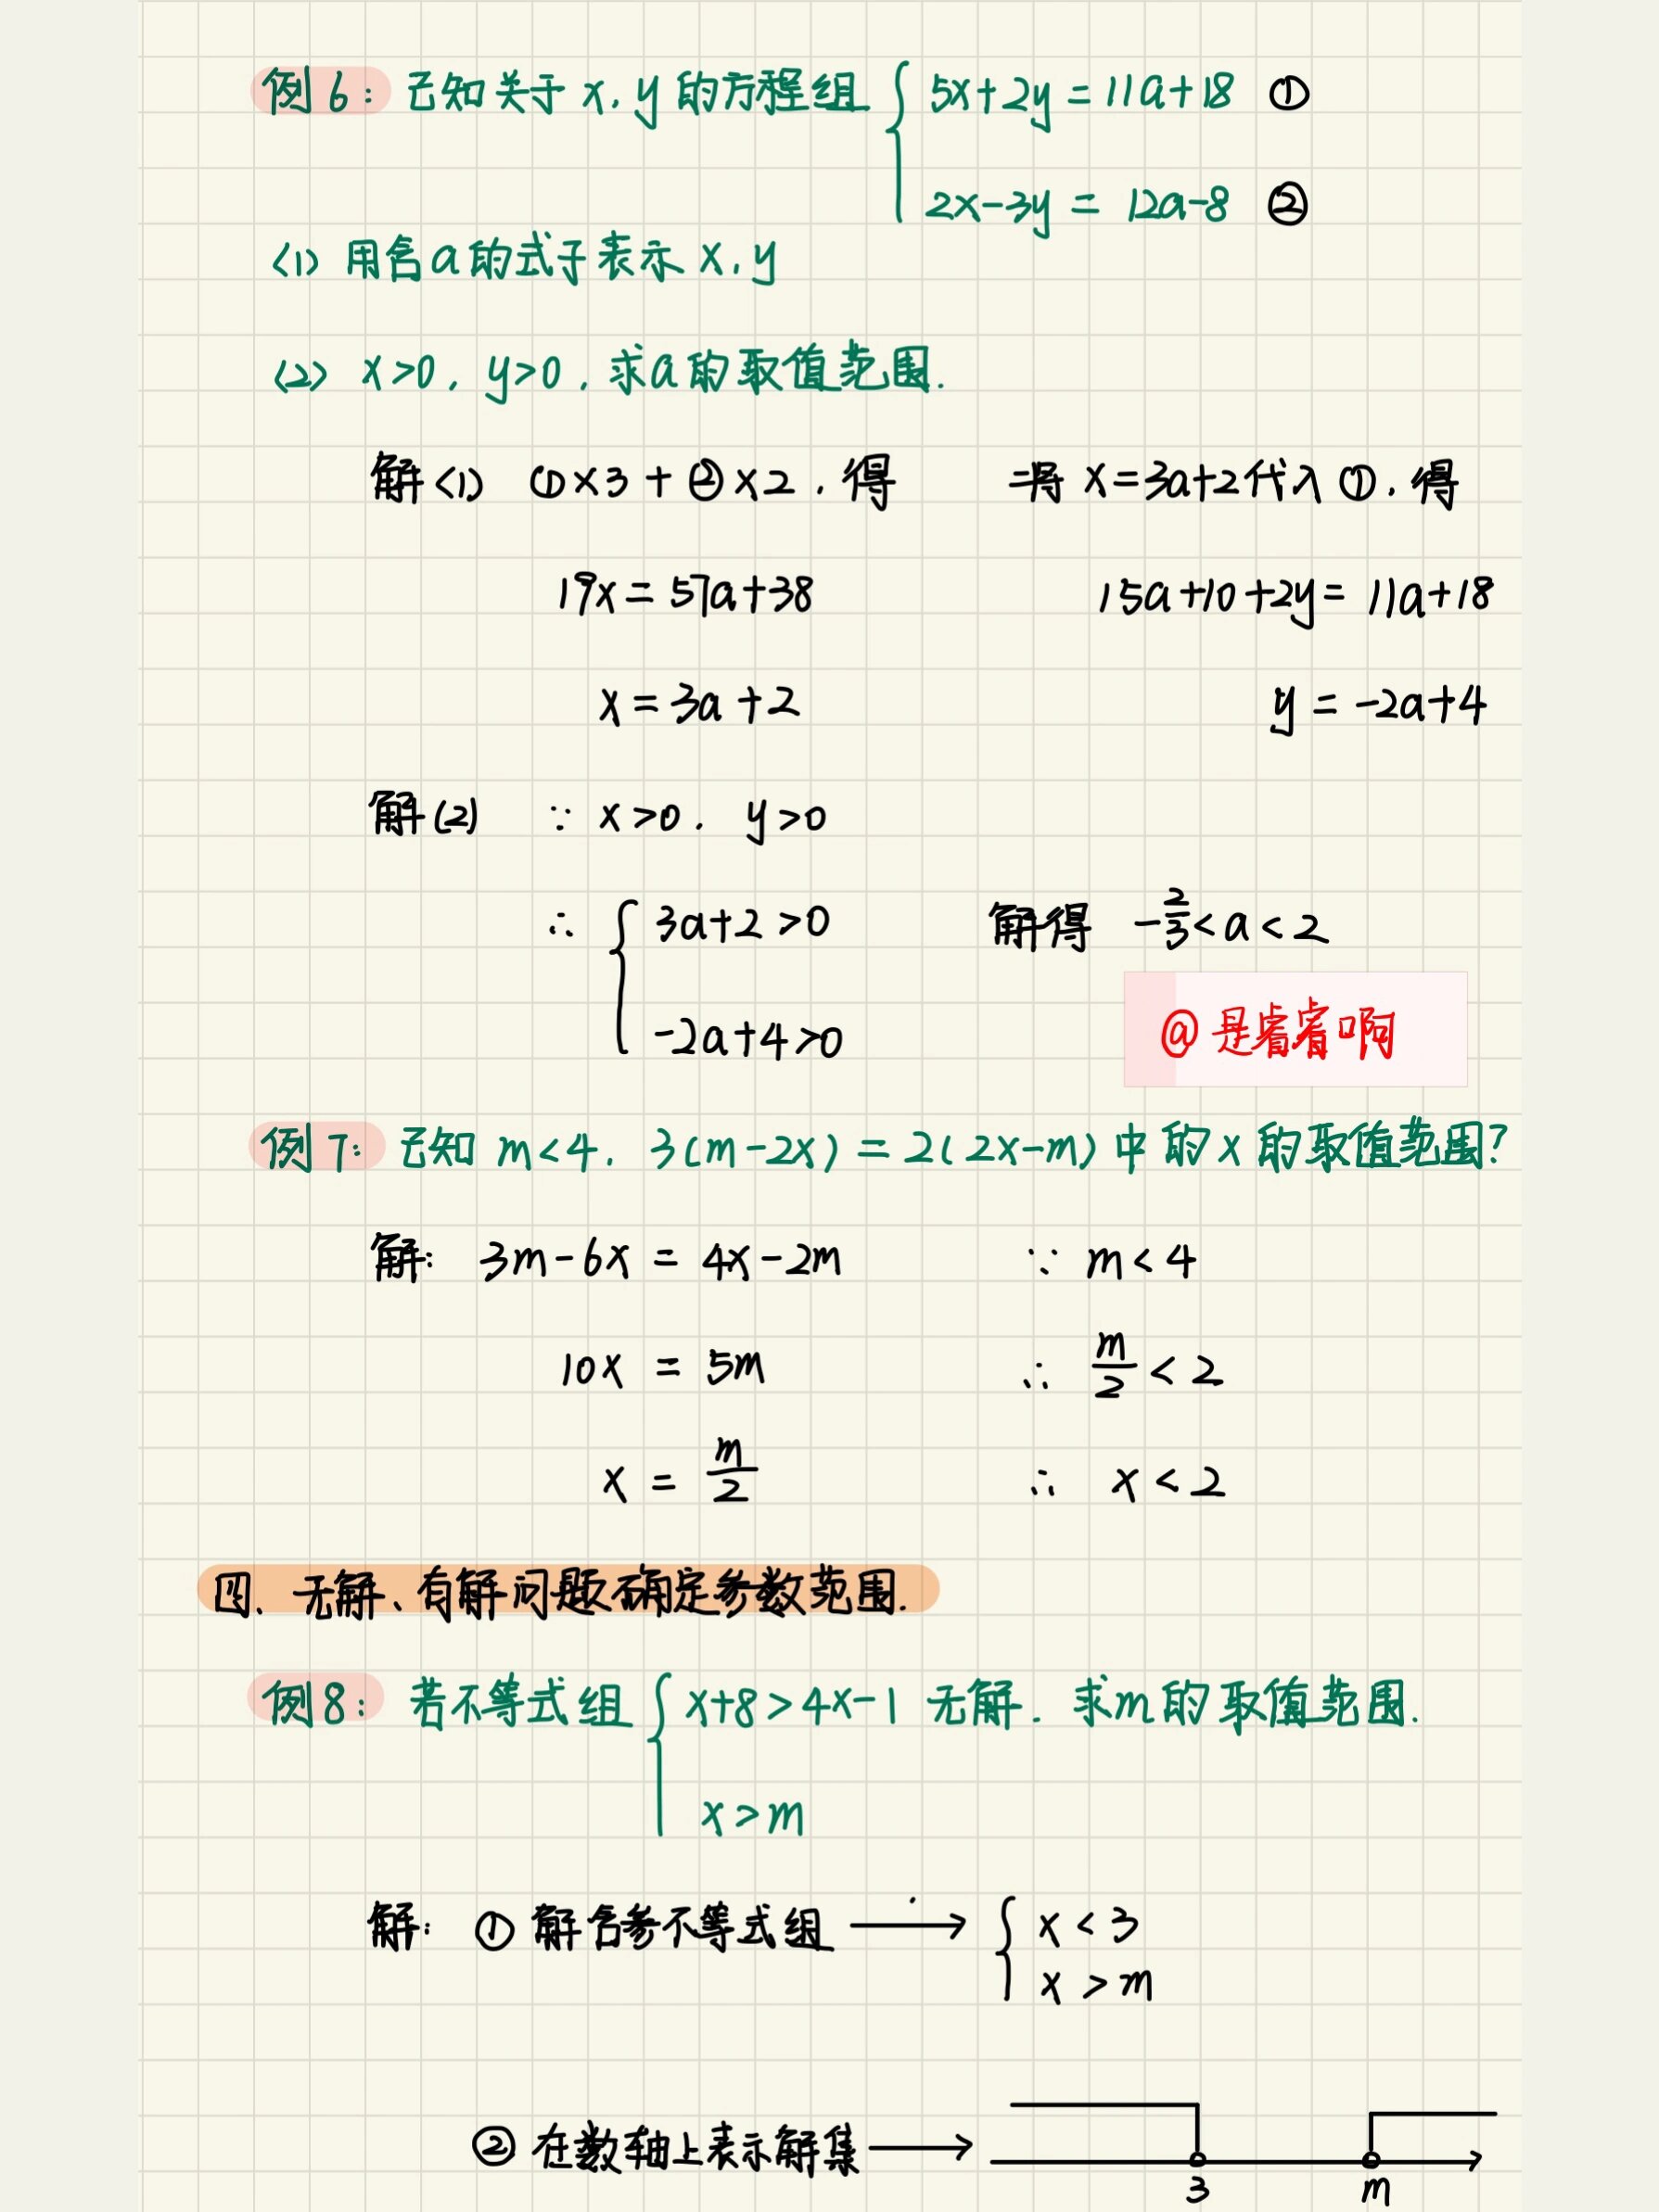 例6：已知关于x，y的方程组 { 5x+2y=11a+18 ①
2x-3y=12a-8 ②
<1> 用含a的式子表示x，y
<2> x>0，y>0，求a的取值范围.
解<1> ①×3+②×2，得 将x=3a+2代入①，得
19x=57a+38 15a+10+2y=11a+18
x=3a+2 y=-2a+4
解(2) ∵ x>0. y>0
∴ { 3a+2>0 解得 -2/3<a<2
-2a+4>0
@是睿睿啊
例7：已知m<4. 3(m-2x)=2(2x-m)中的x的取值范围?
解：3m-6x=4x-2m ∵ m<4
10x=5m ∴ m/2<2
x=m/2 ∴ x<2
四、无解、有解问题确定参数范围.
例8：若不等式组 { x+8>4x-1 无解. 求m的取值范围.
x>m
解：① 解含参不等式组 → { x<3
x>m
② 在数轴上表示解集 →
3 m